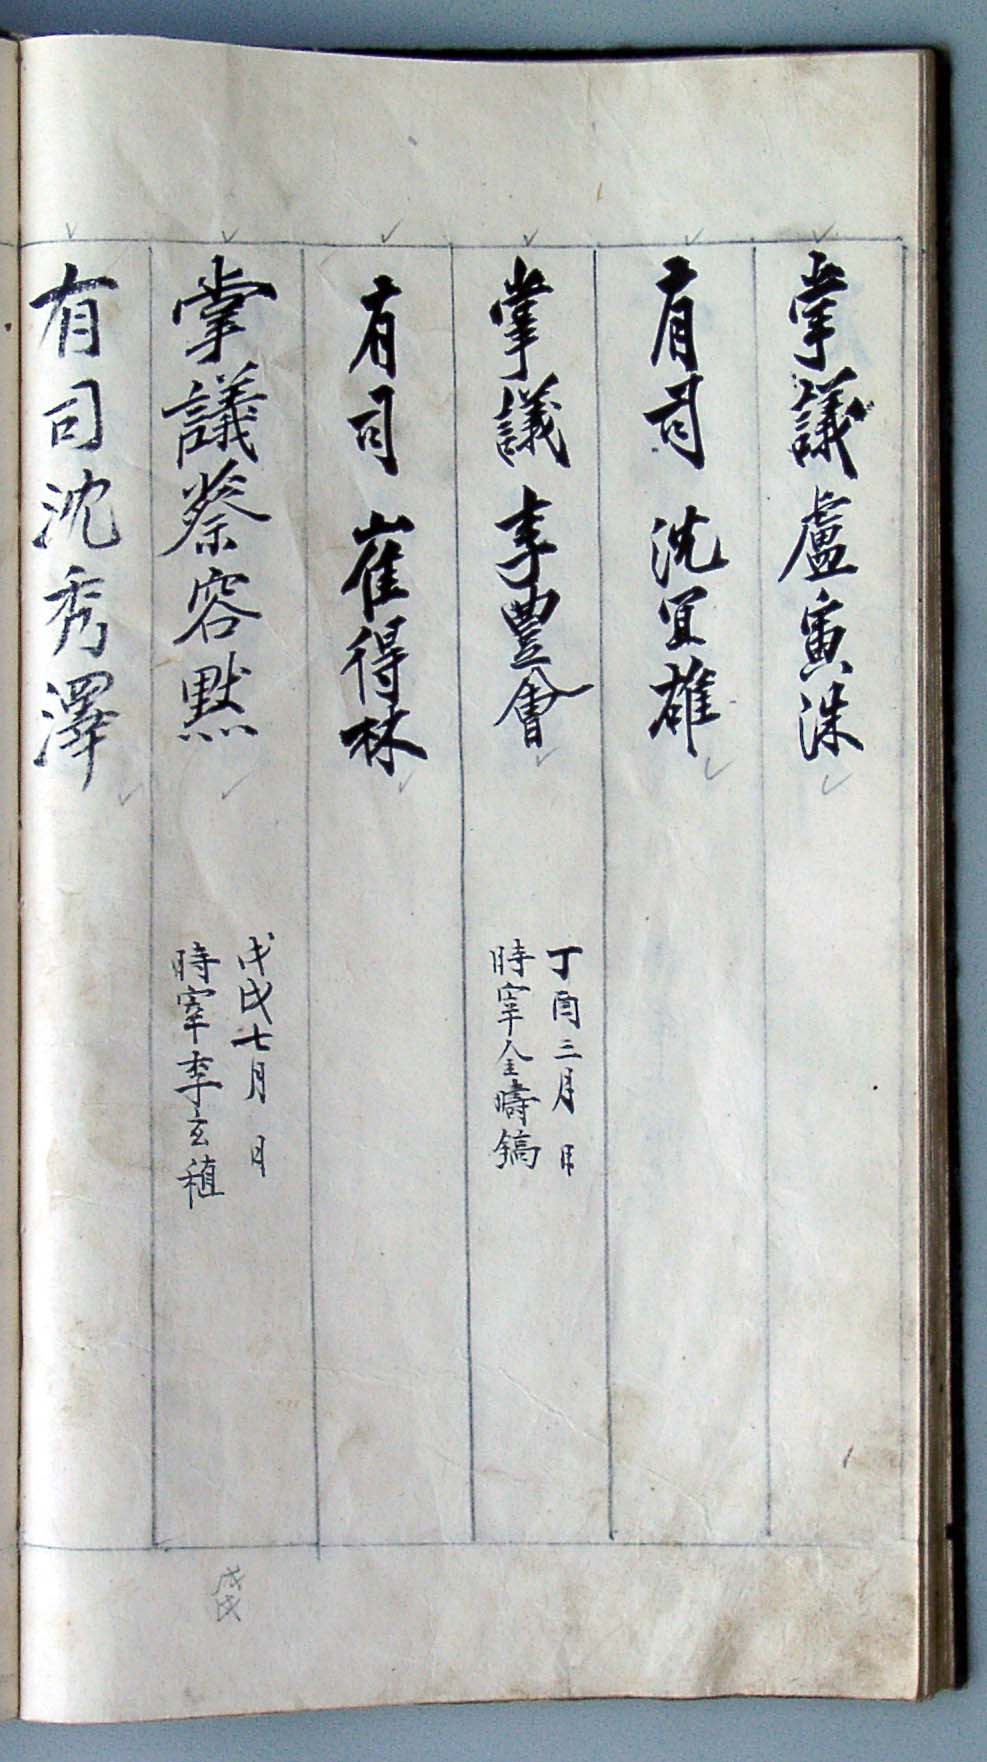 掌議盧寅洙
有司 沈宜雄
掌議 李豊會
丁酉三月 日
時宰金疇鎬
有司 崔得林
掌議蔡容默
戊戌七月 日
時宰李玄稙
有司沈秀澤
戊戌